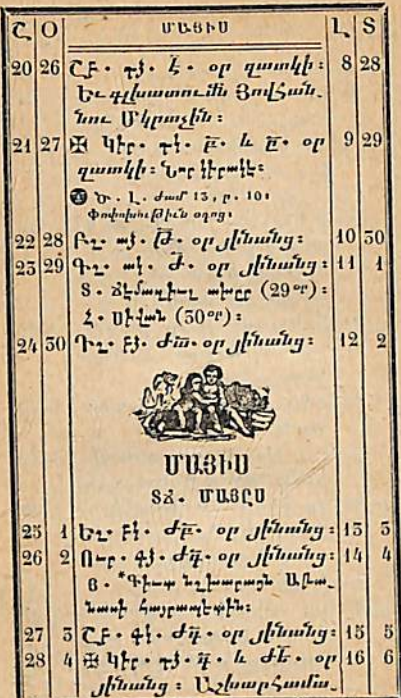 Շ Օ ՄԱՅԻՍ Լ Տ
20 26 ՇԲ. դձ. Է. օր զատկի: 8 28
Եւ գլխատումն Յովհան֊
նու Մկրտչին:
21 27 ✠ Կիր. դկ. Ը. և Ը. օր 9 29
զատկի: Նոր կիրակէ:
Ծ. Լ. ժամ 13, ր. 10:
Փոփոխութիւն օդոց:
22 28 Բշ. աձ. Թ. օր յինանց: 10 30
23 29 Գշ. ակ. Ժ. օր յինանց: 11 1
Տ. Ճէմազիւլ ախըր (29օր):
Հ. Սիվան (30օր):
24 30 Դշ. բձ. ԺԱ. օր յինանց: 12 2
ՄԱՅԻՍ
ՏՃ. ՄԱՅԸՍ
25 1 Եշ. բկ. ԺԲ. օր յինանց: 13 3
26 2 Ուր. գձ. ԺԳ. օր յինանց: 14 4
Յ. *Գիւտ նշխարացն Աթա֊
նասի Հայրապետին:
27 3 ՇԲ. գկ. ԺԴ. օր յինանց: 15 5
28 4 ✠ Կիր. դձ. Դ. և ԺԵ. օր 16 6
յինանց: Աշխարհամա֊